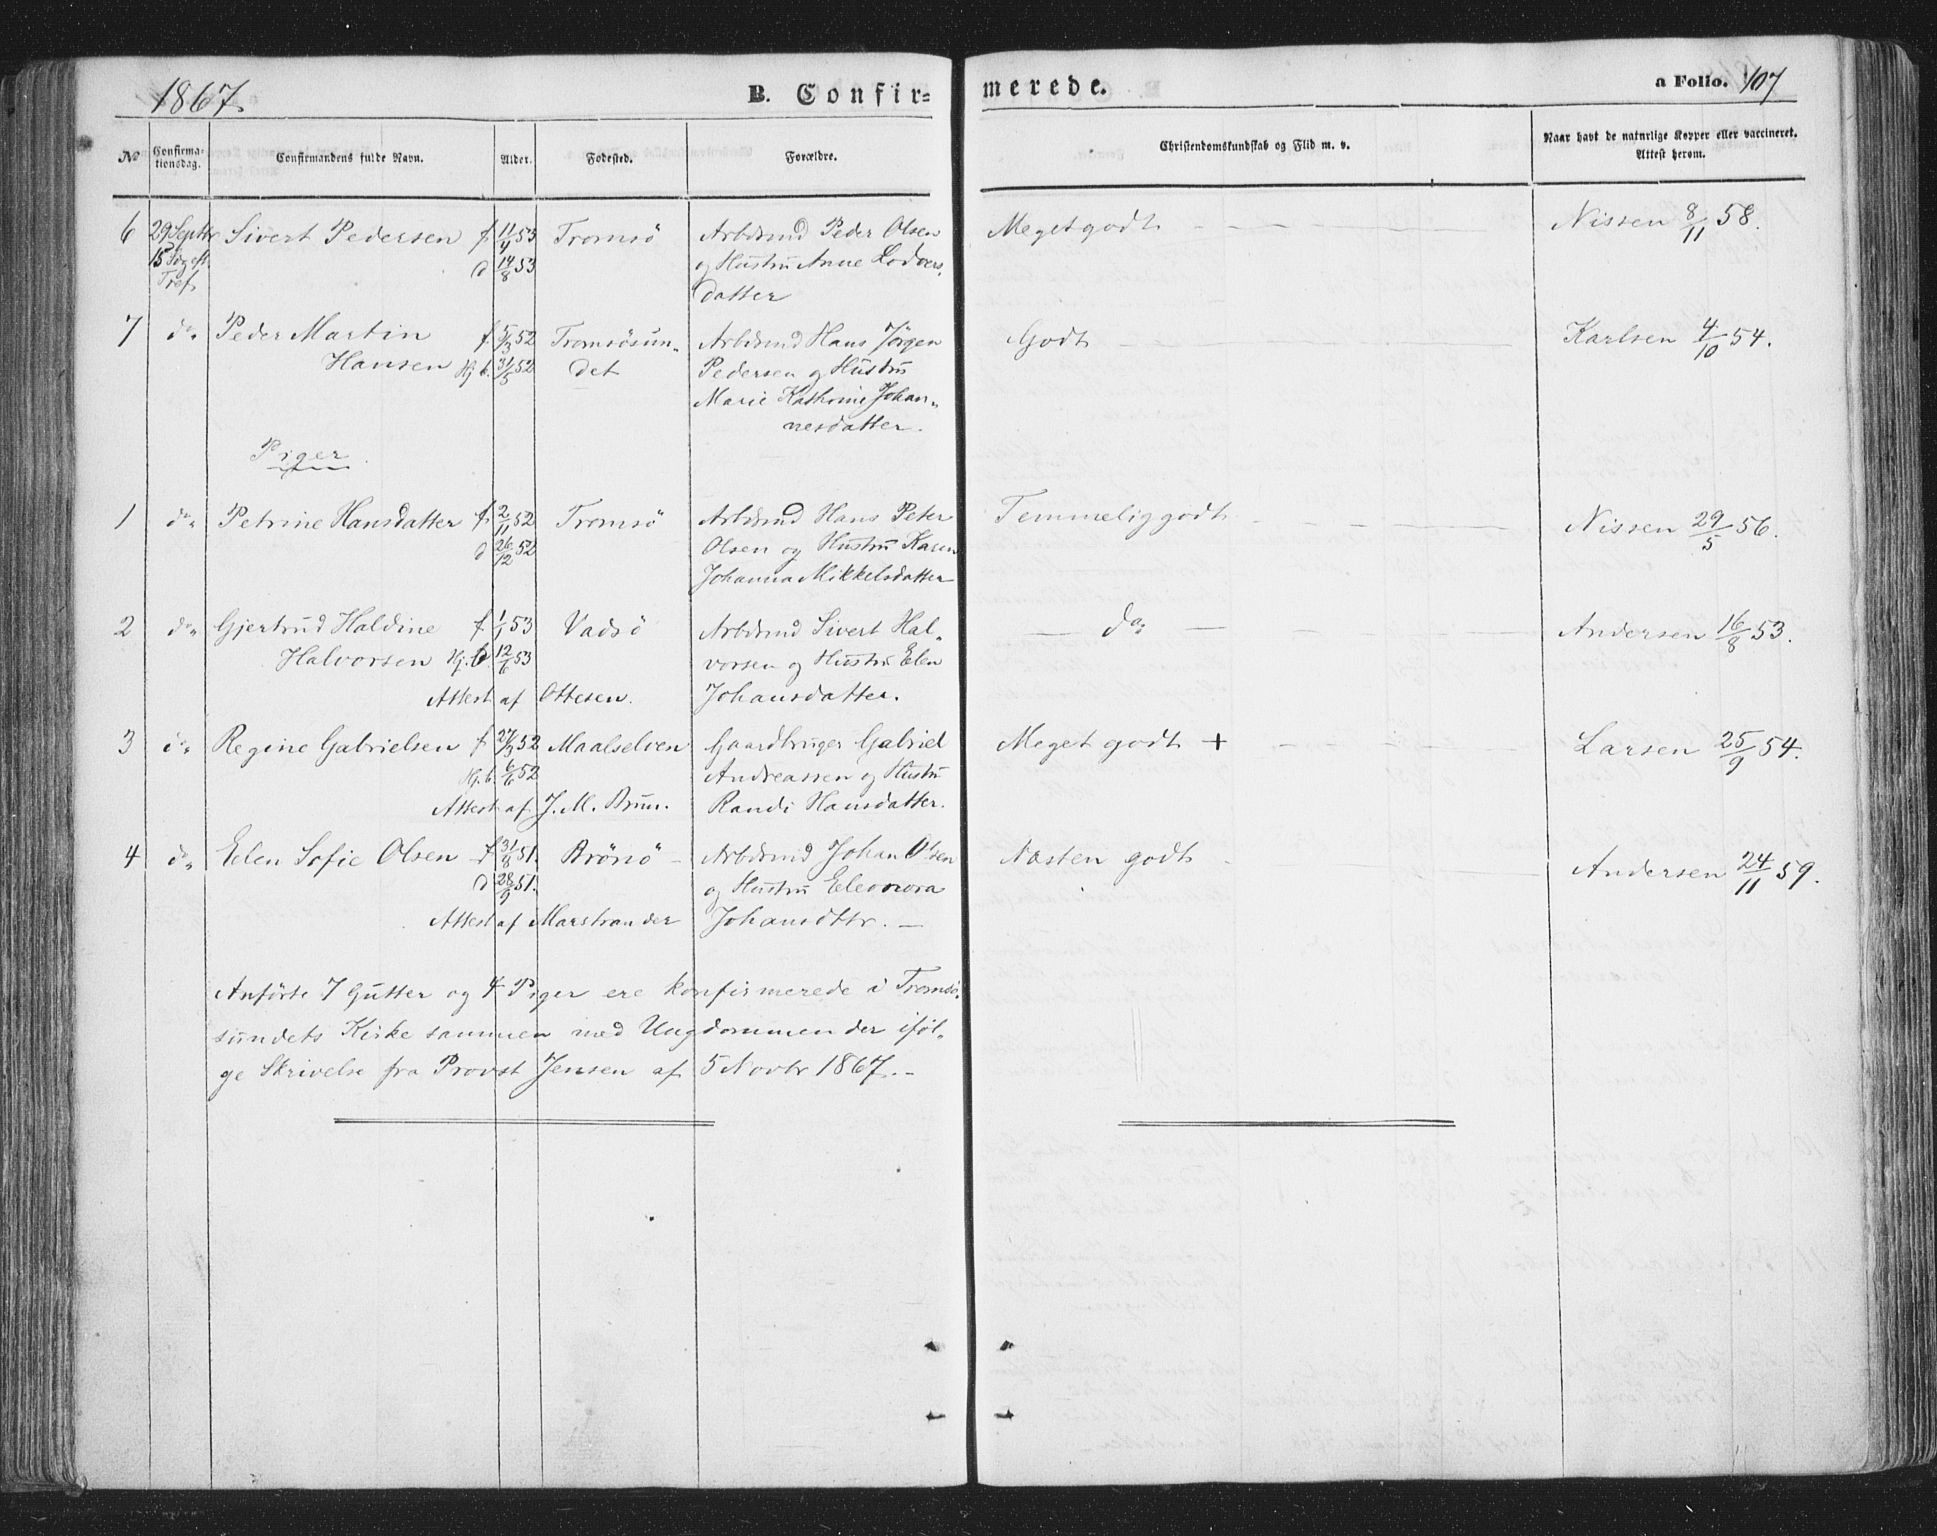 1867.
B. Confir=
merede.
a Folio. 107
No
Confirma-
tionsdag.
Confirmandens fulde Navn.
Alder.
Fødested.
Forældre.
Christendomskundskab og Flid m. v.
Naar havt de naturlige Kopper eller vaccineret.
Attest herom.
6 29 Septbr Sivert Pedersen f. 11/4 53 Tromsö Arbdsmd Peder Olsen Meget godt Nissen 8/11 58.
15 Søg eft. d 14/8 53 og Hustru Anne Lodvers-
Tref. datter
7 do Peder Martin f. 5/3 52 Tromsösun- Arbdsmd Hans Jörgen Godt Karlsen 4/10 54.
Hansen Hj. b. 31/5 52 det Pedersen og Hustru
Marie Kathrine Johan-
nesdatter.
Piger.
1 do Petrine Hansdatter f. 2/11 52 Tromsö Arbdsmd Hans Peter Temmelig godt Nissen 29/5 56.
d 26/12 52 Olsen og Hustru Karen
Johanna Mikkelsdatter
2 do Gjertrud Haldine f. 1/1 53 Vadsö Arbdsmd Sivert Hal- do Andersen 16/8 53.
Halvorsen Hj. b. 12/6 53 vorsen og Hustru Elen
Attest af Ottesen. Johansdatter.
3 do Regine Gabrielsen f 52 Maalselven Gaardbruger Gabriel Meget godt + Larsen 25/9 54.
Hj. b. 6/6 52 Andreassen og Hustru
Attest af J. M. Brun. Randi Hansdatter.
4 do Elen Sofie Olsen f 31/8 51. Brönö Arbdsmd Johan Olsen Næsten godt Andersen 24/11 59.
d 28/9 51. og Hustru Eleonora
Attest af Marstrander Johansdttr.
Anförte 7 Gutter og 4 Piger ere konfirmerede i Tromsö-
sundets Kirke sammen med Ungdommen der iföl-
ge Skrivelse fra Provst Jensen af 5 Novbr 1867.